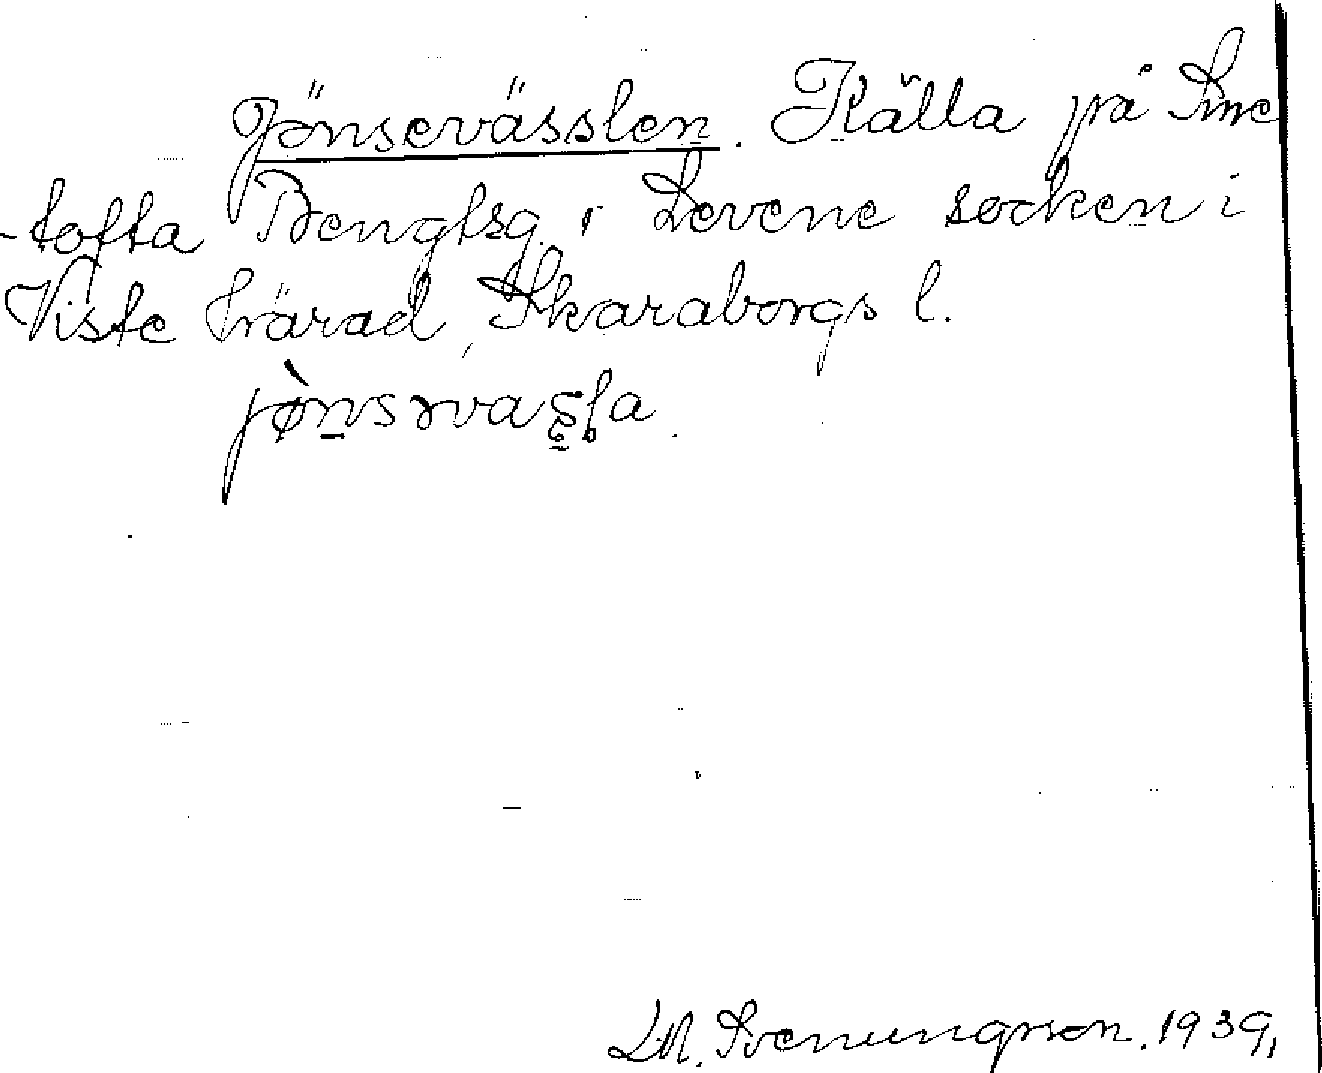 Jönsevässlen. Källa på Sme
-tofta Bengtsg. i Levene socken i
Viste härad, Skaraborgs l.
jò̤nsəva
L.M. Svenungsson. 1939.